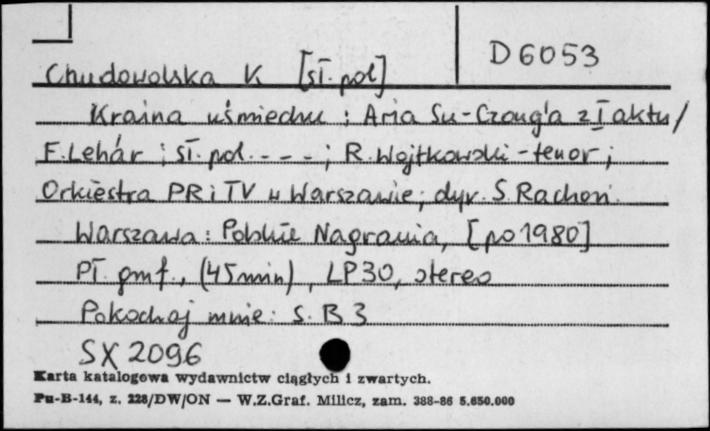 D 6053
Chudowolska K [sł. pol]
Kraina uśmiechu : Aria Su-Czong'a z I aktu /
F. Lehár ; sł. pol. - - - ; R. Wojtkowski - tenor ;
Orkiestra PR i TV w Warszawie ; dyr. S. Rachoń.
Warszawa : Polskie Nagrania, [po 1980]
Pł. gmf., (45 min), LP 30, stereo
Pokochaj mnie : s. B 3
SX 2096
Karta katalogowa wydawnictw ciągłych i zwartych.
Pu-B-144, z. 228/DW/ON — W.Z.Graf. Milicz, zam. 388-86 5.650.000